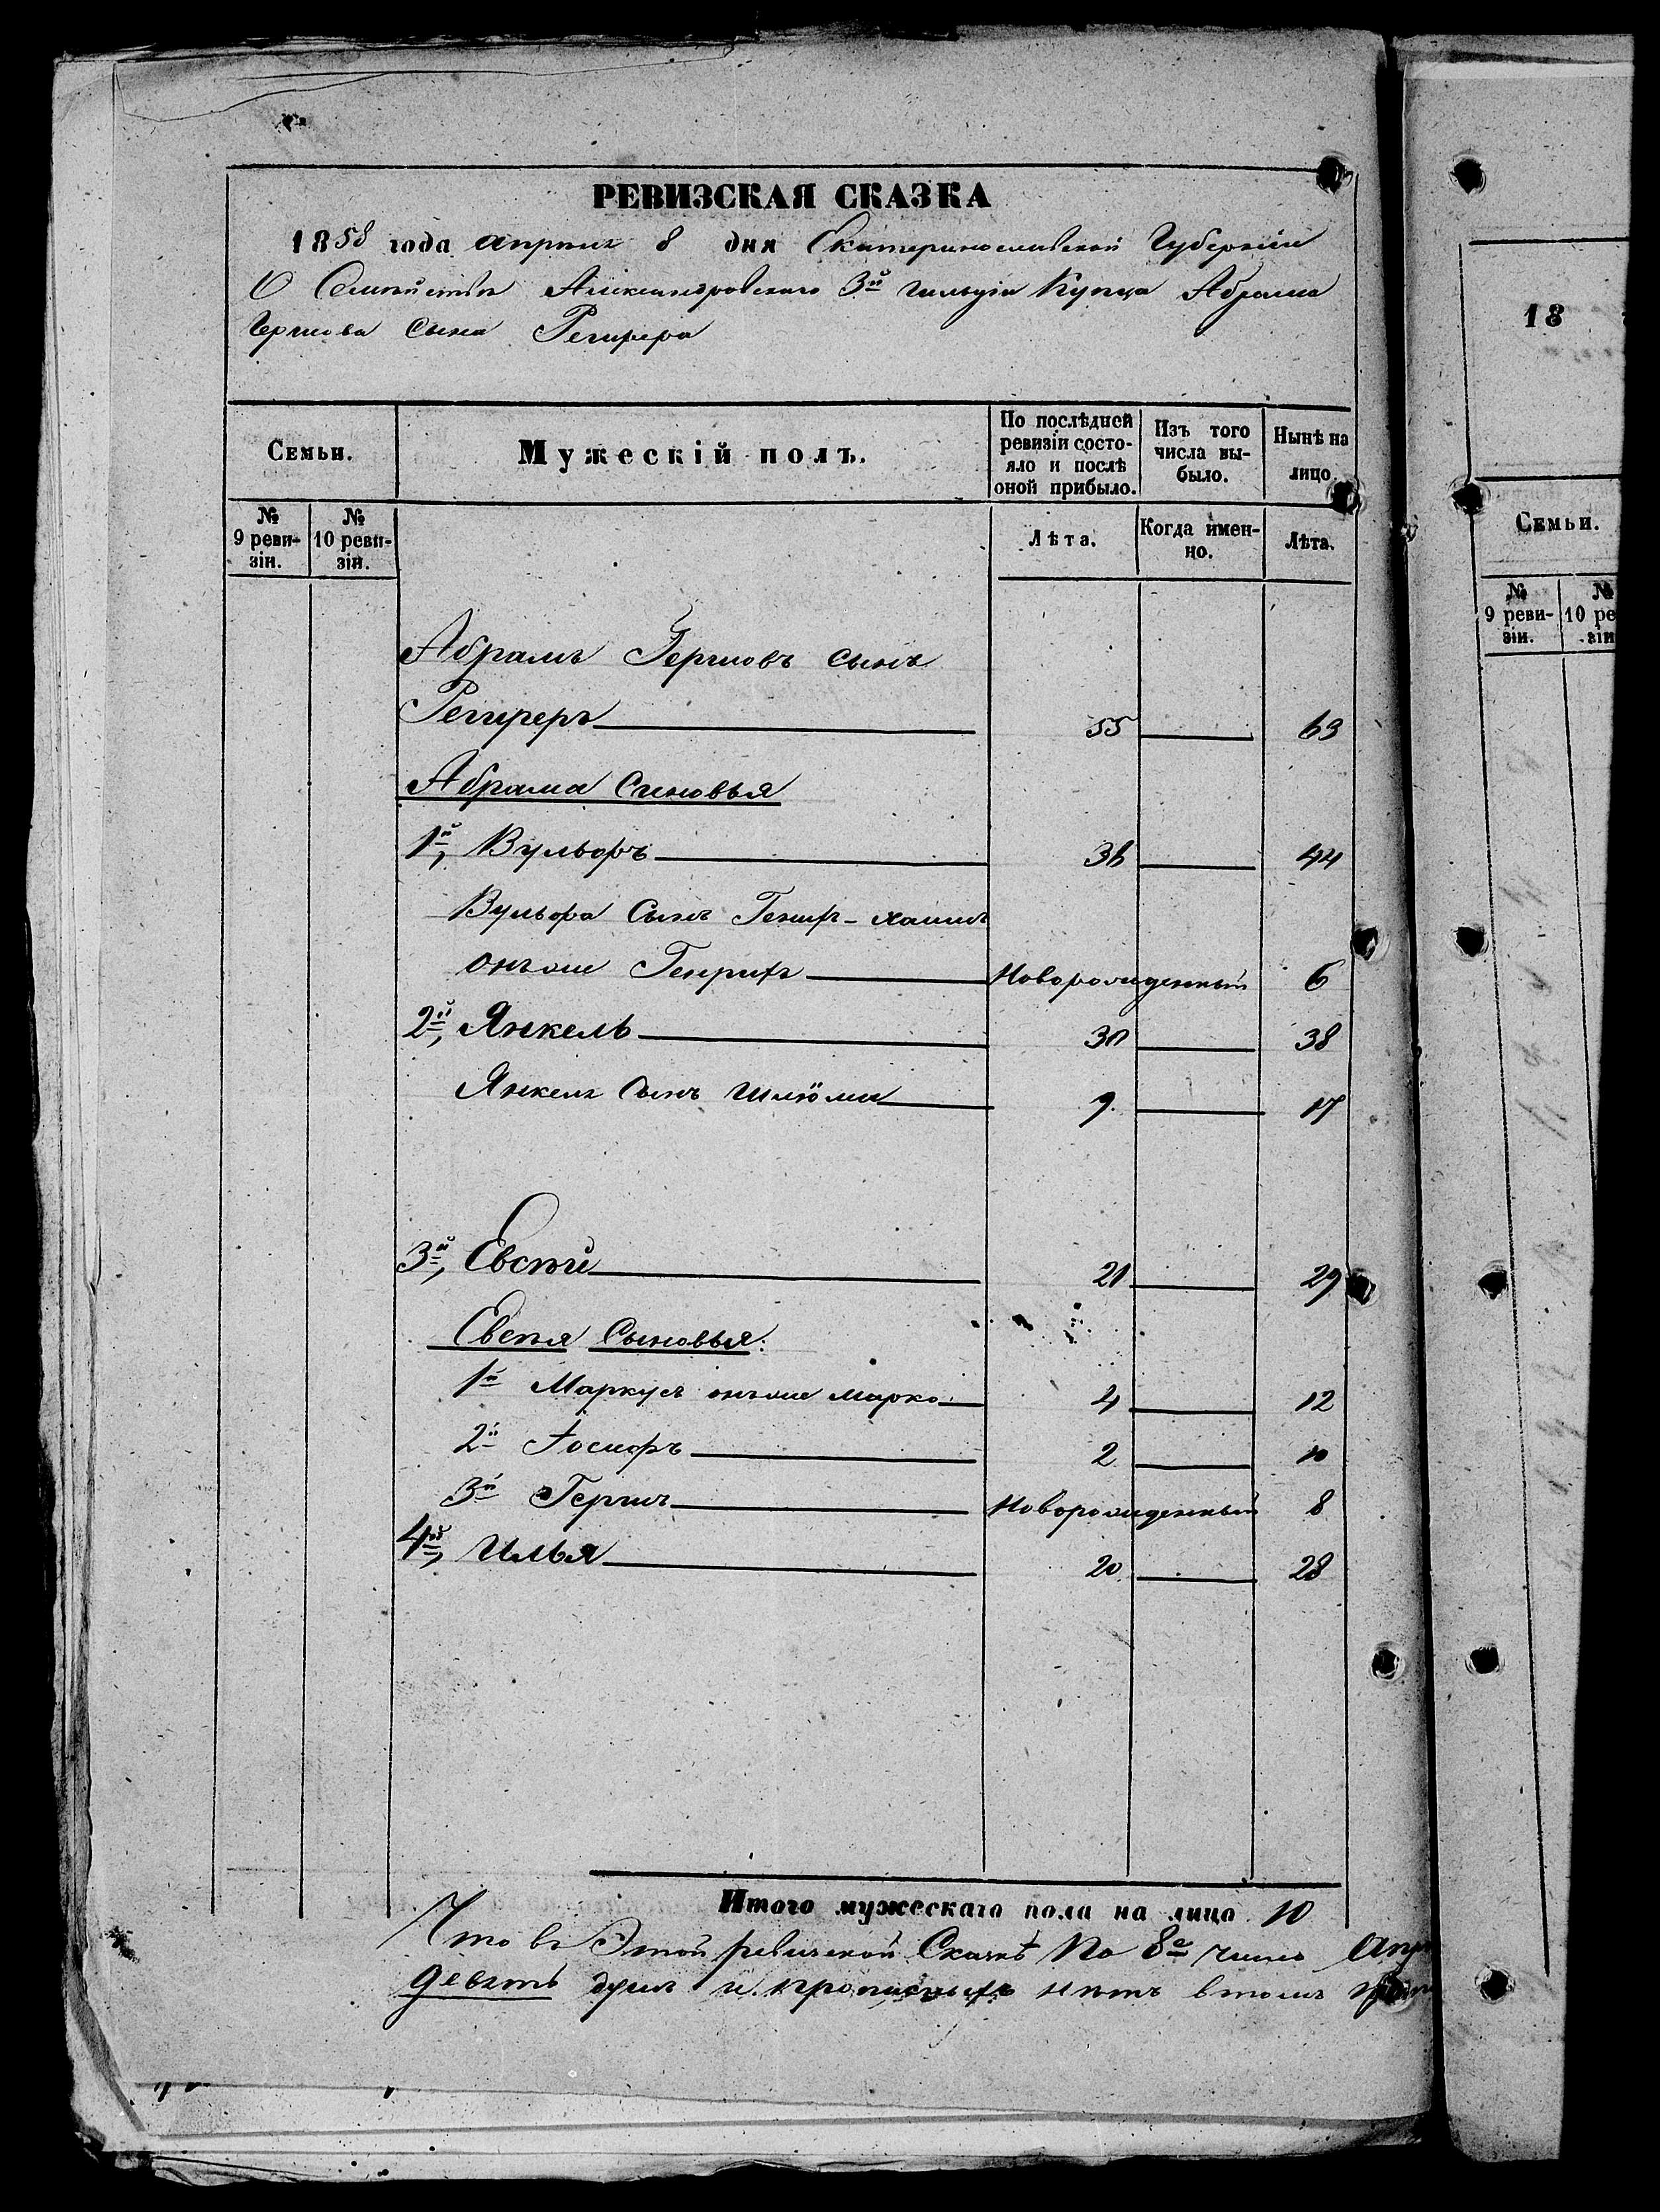 РЕВИЗСКАЯ СКАЗКА
1858 года апреля 8 дня Екатеринославской Губерніи
О Семействѣ Александровскаго 3й гильдіи Купца Абрама
Гершова сына
Семьи.
Мужескій полъ.
По послѣдней ревизіи состояло и послѣ оной прибыло.
Изъ того числа выбыло.
Нынѣ на лицо.
№ 9 ревизіи.
№ 10 ревизіи.
Лѣта.
Когда именно.
Лѣта.
Абрамъ Гершовъ сынъ
55 63
Абрама Сыновья
1й, Вульфъ 36 44
Вульфа Сынъ
онъже Генрихъ Новорожденный 6
2й, Янкель 30 38
Янкеля Сынъ Шлюма 9. 17
3й, Евсѣй 21 29
Евсѣя Сыновья:
1й Маркусъ онъже Марко 4 12
2й Іосифъ 2 10
3й Гершъ Новорожденный 8
4й, Илья 20 28
Итого мужескаго пола на лицо 10
Что въ Этой ревизской Сказкѣ По 8е число
девять душъ и прописныхъ нѣтъ втомъ
18
Семьи.
№ 9 ревизіи.
№
10 ре
зін